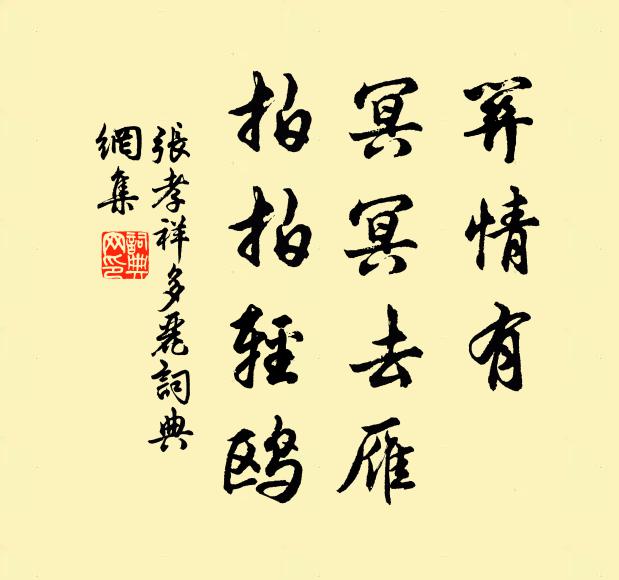 關情有
冥冥去雁
拍拍輕鸥
張孝祥多麗詞典
網集
詞典
网印